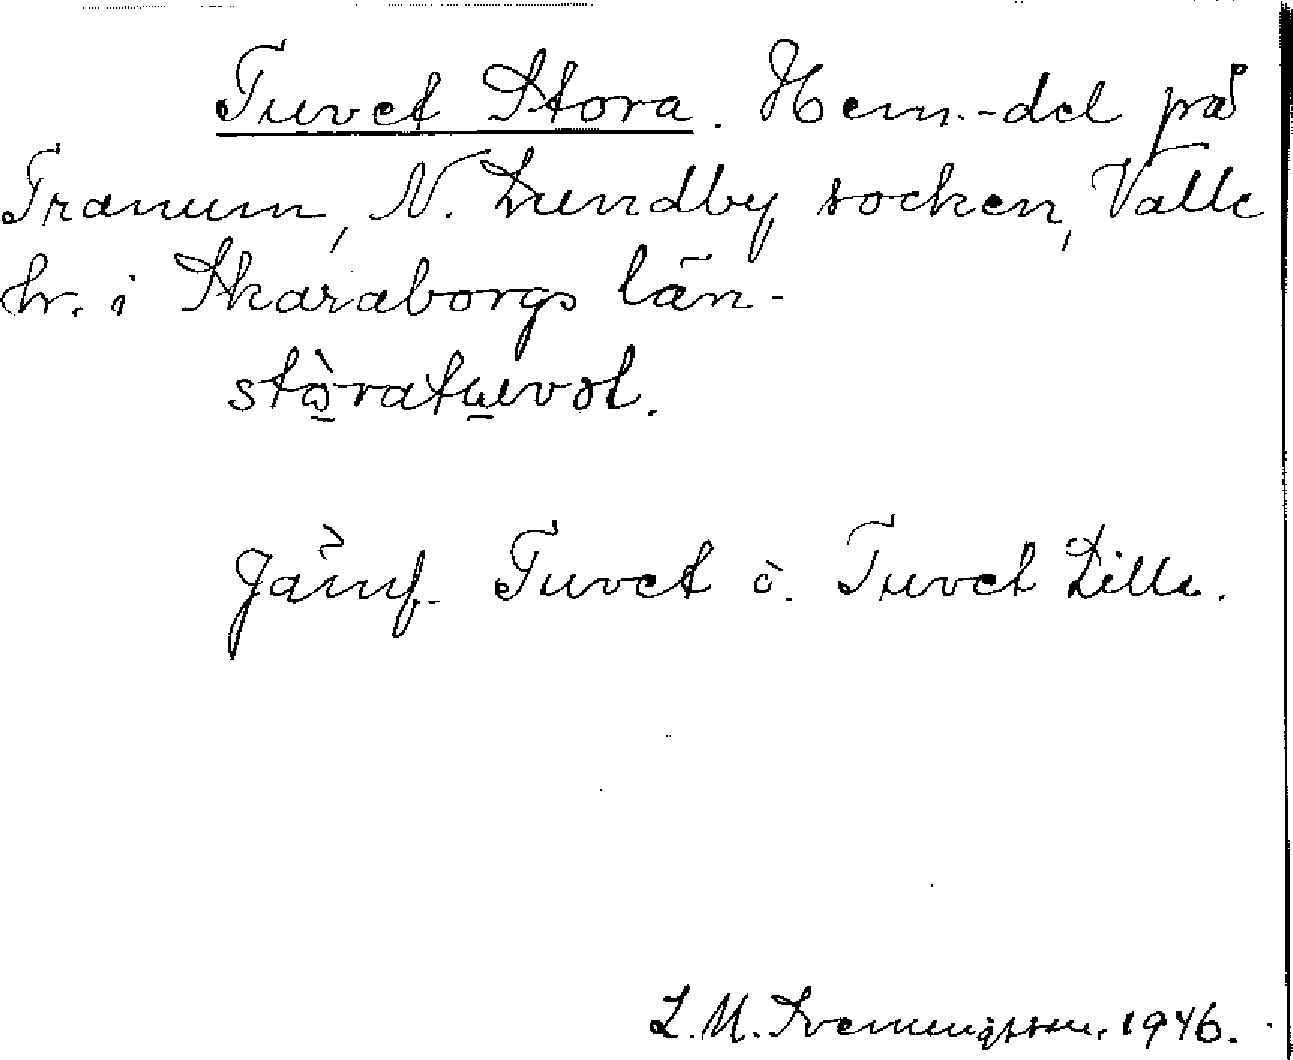 Tuvet Stora. Hem.-del på
Tranum, N. Lundby socken, Valle
hr. i Skaraborgs län -
stòratuvət.
Jämf. Tuvet o. Tuvet Lilla.
L. M. Svenungsson. 1946.